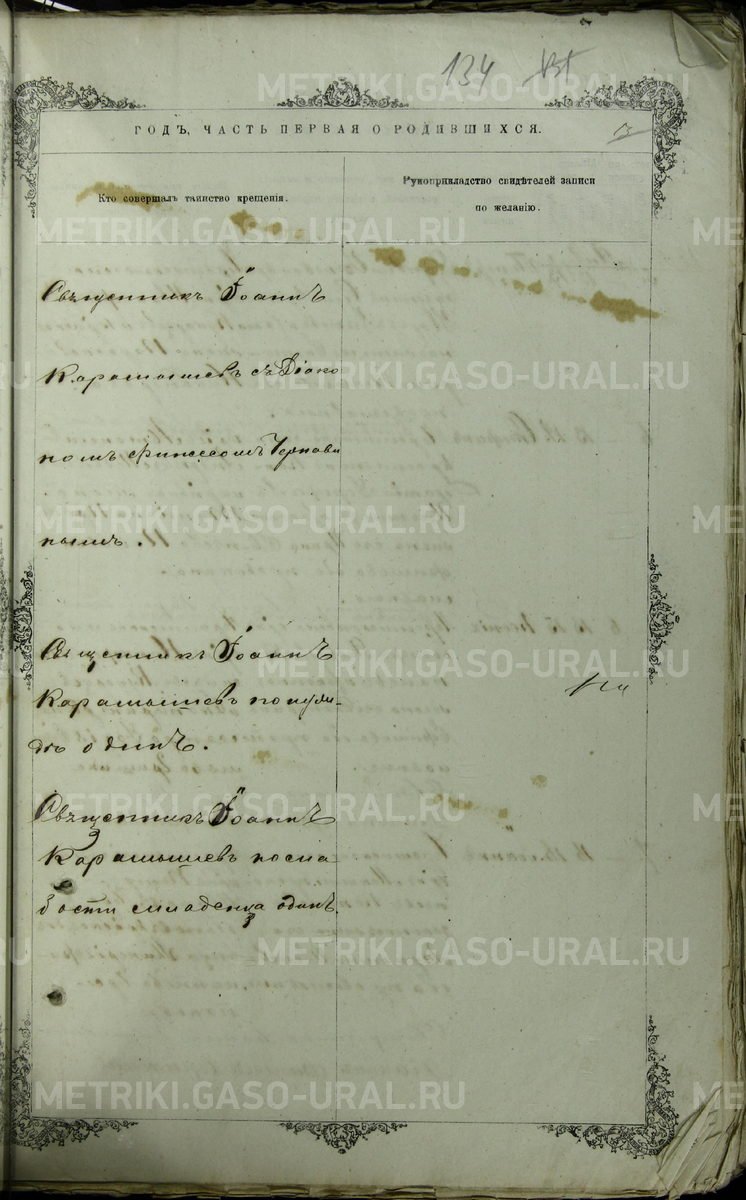 134
ГОДЪ, ЧАСТЬ ПЕРВАЯ О РОДИВШИХСЯ.
Кто совершалъ таинство крещенія.
Рукоприкладство свидѣтелей записи
по желанію.
Священникъ Іоаннъ
Карамышевъ съ Діако
номъ
нымъ.
Священникъ Іоаннъ
Карамышевъ по нуж-
дѣ одинъ.
Священникъ Іоаннъ
Карамышевъ по сла
бости младенца одинъ.
METRIKI.GASO-URAL.RU